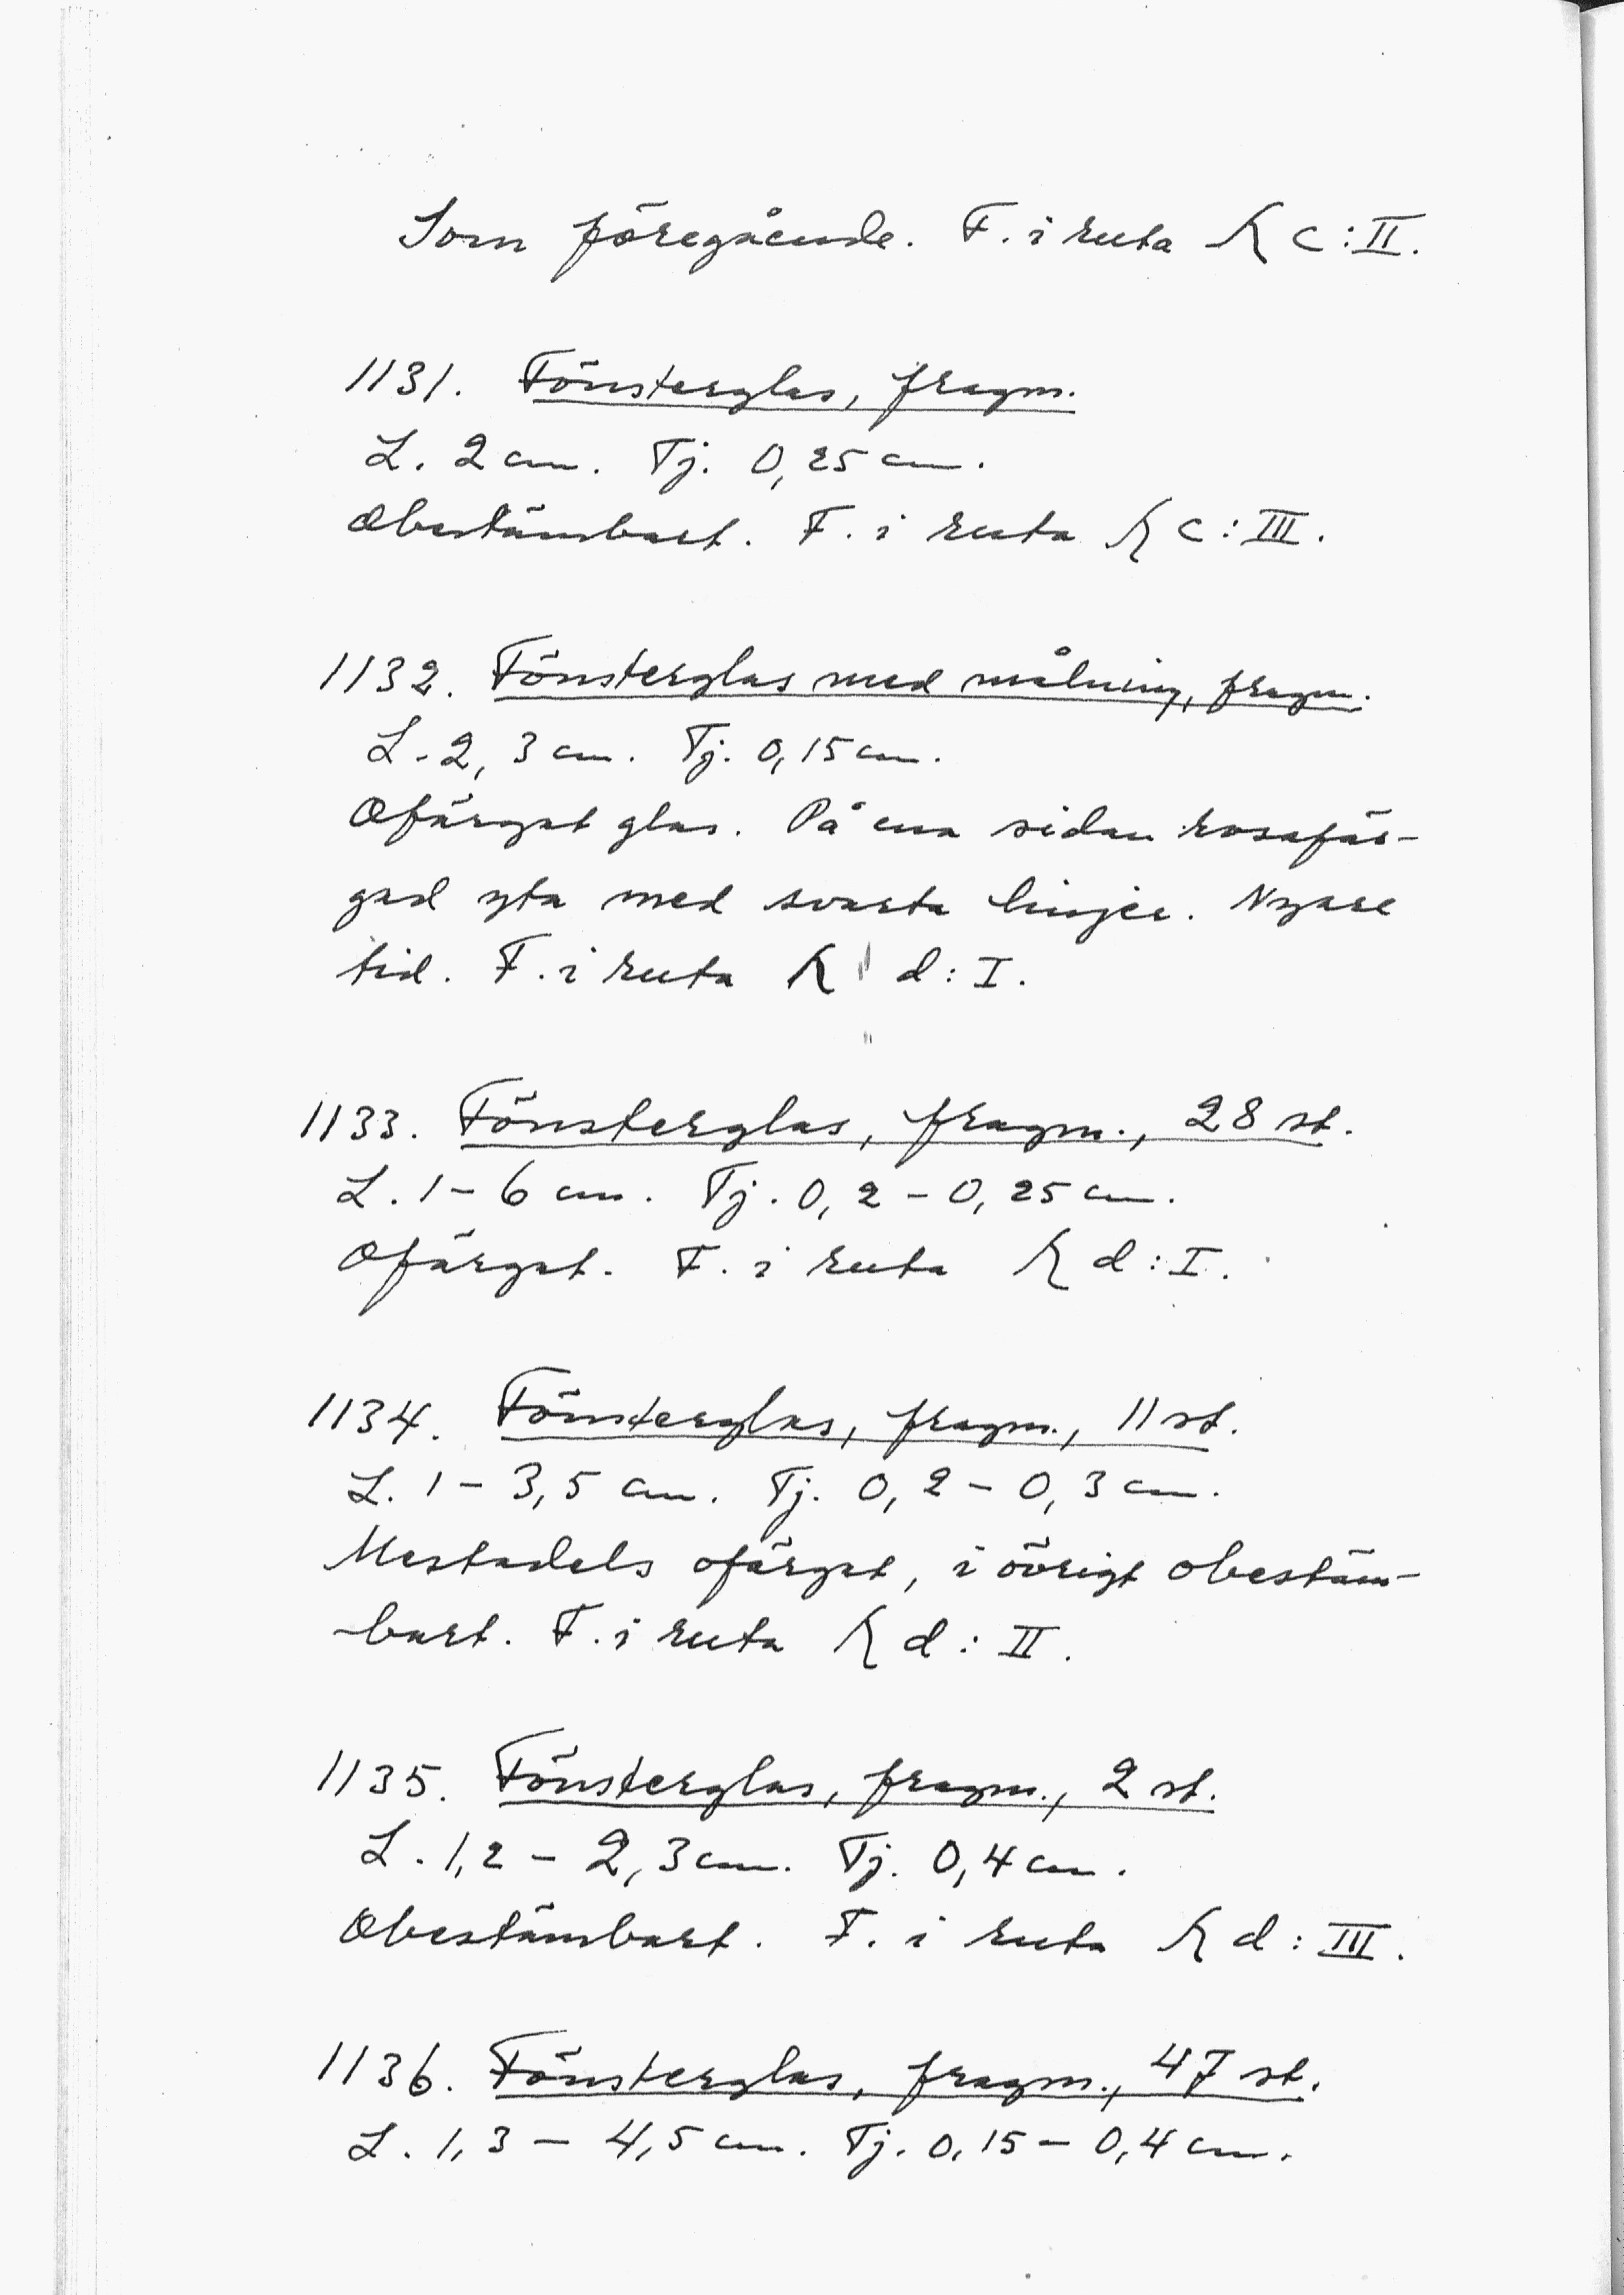 Som föregående. F. i ruta K c: II.
1131. Fönsterglas, fragm.
L. 2 cm. Tj. 0,25 cm.
Obestämbart. F. i ruta K c: III.
1132. Fönsterglas med målning, fragm.
L. 2,3 cm. Tj. 0,15 cm.
Ofärgat glas. På ena sidan rosafär-
gad yta med svarta linjer. Nyare
tid. F. i ruta K d: I.
1133. Fönsterglas, fragm., 28 st.
L. 1-6 cm. Tj. 0,2 - 0,25 cm.
Ofärgat. F. i ruta K d: I.
1134. Fönsterglas, fragm., 11 st.
L. 1 - 3,5 cm. Tj. 0,2 - 0,3 cm.
Mestadels ofärgat, i övrigt obestäm-
-bart. F. i ruta K d: II.
1135. Fönsterglas, fragm., 2 st.
L. 1,2 - 2,3 cm. Tj. 0,4 cm.
Obestämbart. F. i ruta K d: III.
1136. Fönsterglas, fragm., 47 st.
L. 1,3 - 4,5 cm. Tj. 0,15 - 0,4 cm.